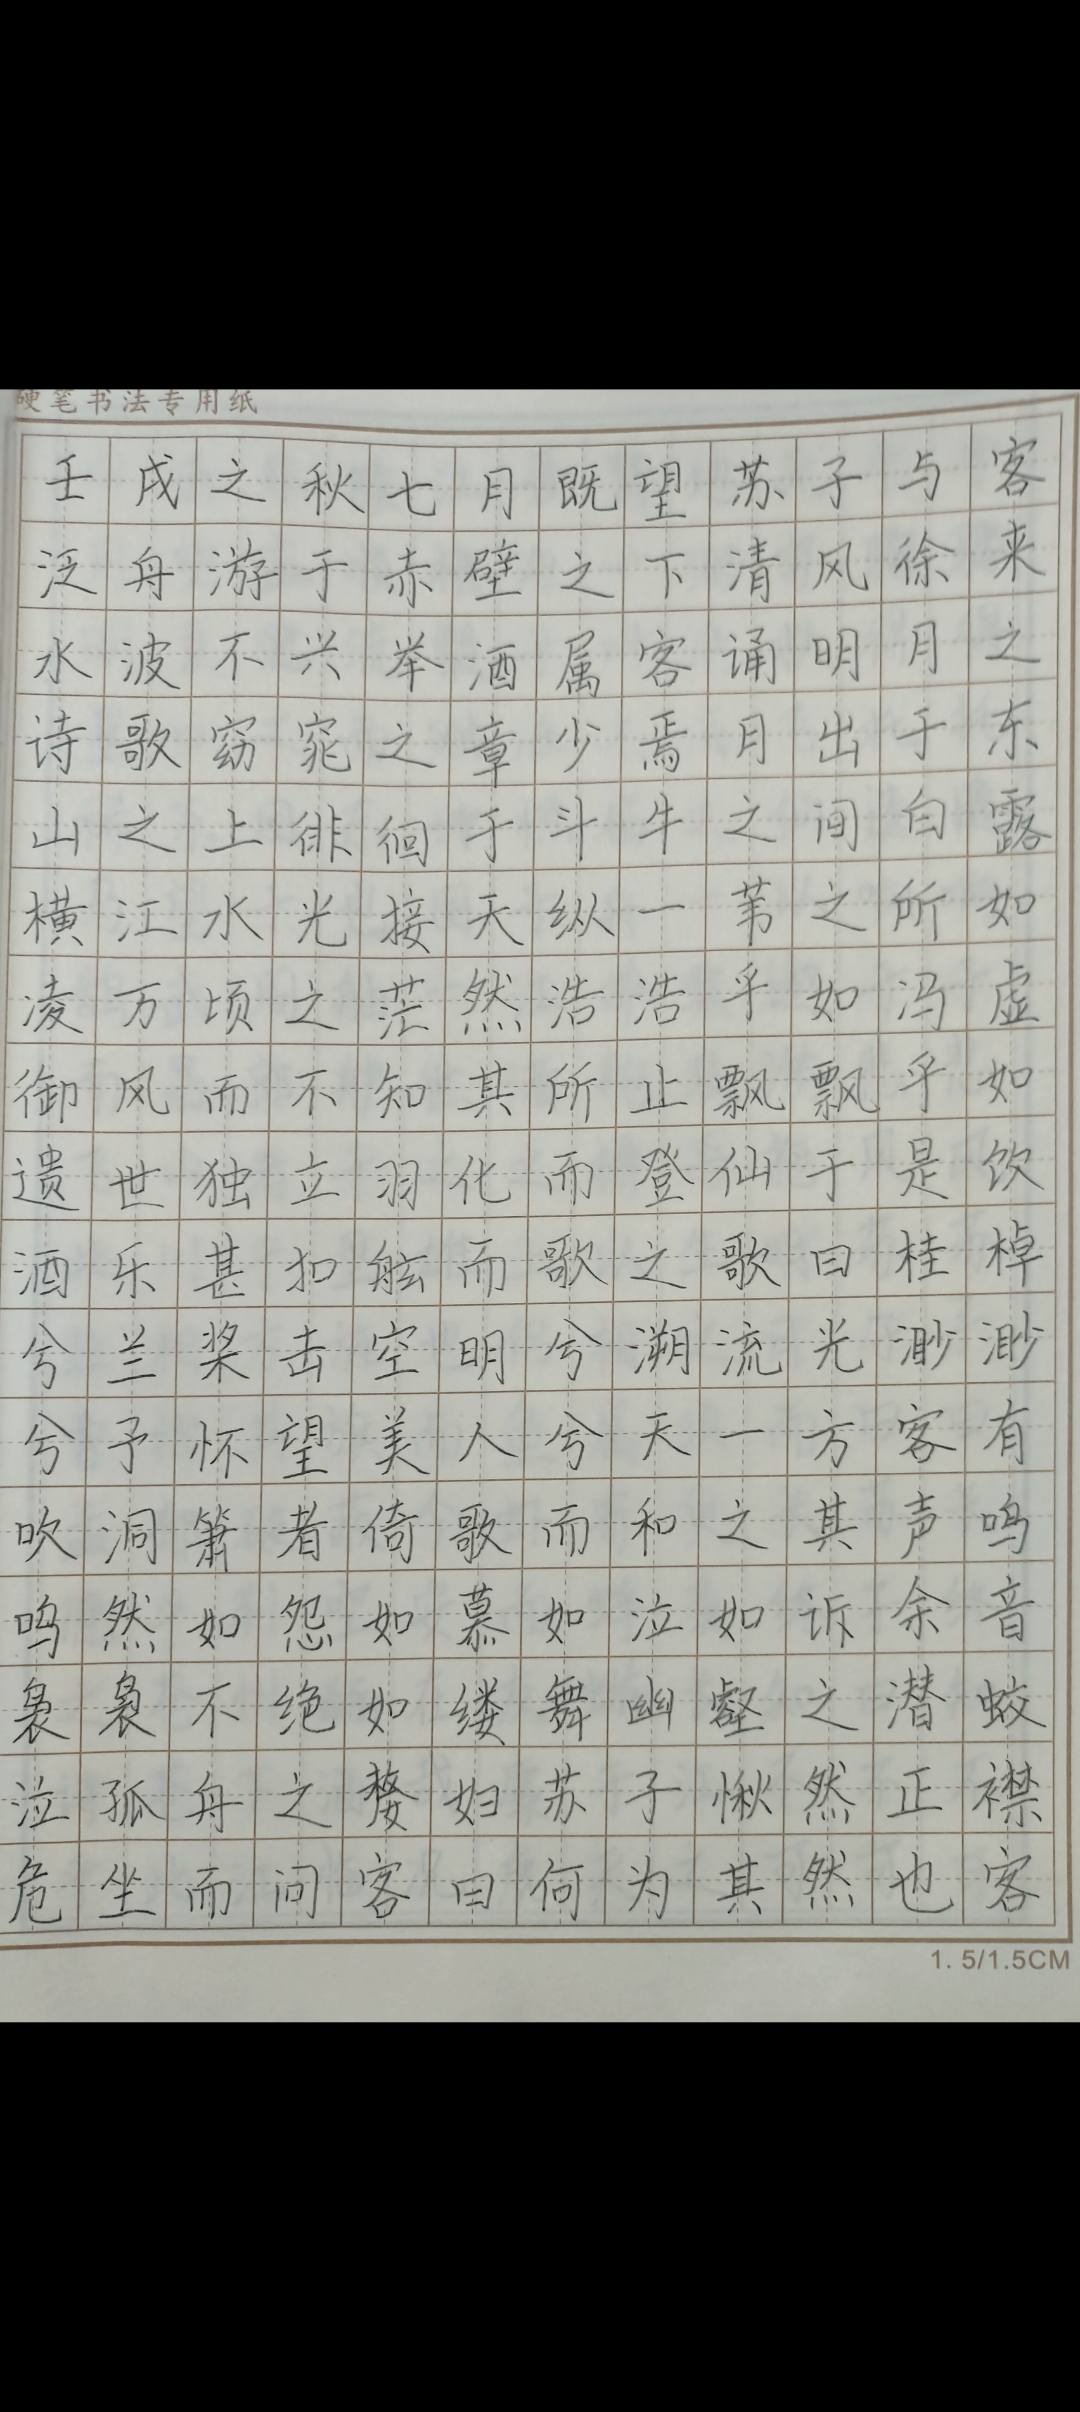 硬笔书法专用纸
壬戌之秋七月既望苏子与客
泛舟游于赤壁之下清风徐来
水波不兴举酒属客诵明月之
诗歌窈窕之章少焉月出于东
山之上徘徊于斗牛之间白露
横江水光接天纵一苇之所如
凌万顷之茫然浩浩乎如冯虚
御风而不知其所止飘飘乎如
遗世独立羽化而登仙于是饮
酒乐甚扣舷而歌之歌曰桂棹
兮兰桨击空明兮溯流光渺渺
兮予怀望美人兮天一方客有
吹洞箫者倚歌而和之其声呜
呜然如怨如慕如泣如诉余音
袅袅不绝如缕舞幽壑之潜蛟
泣孤舟之嫠妇苏子愀然正襟
危坐而问客曰何为其然也客
1.5/1.5CM